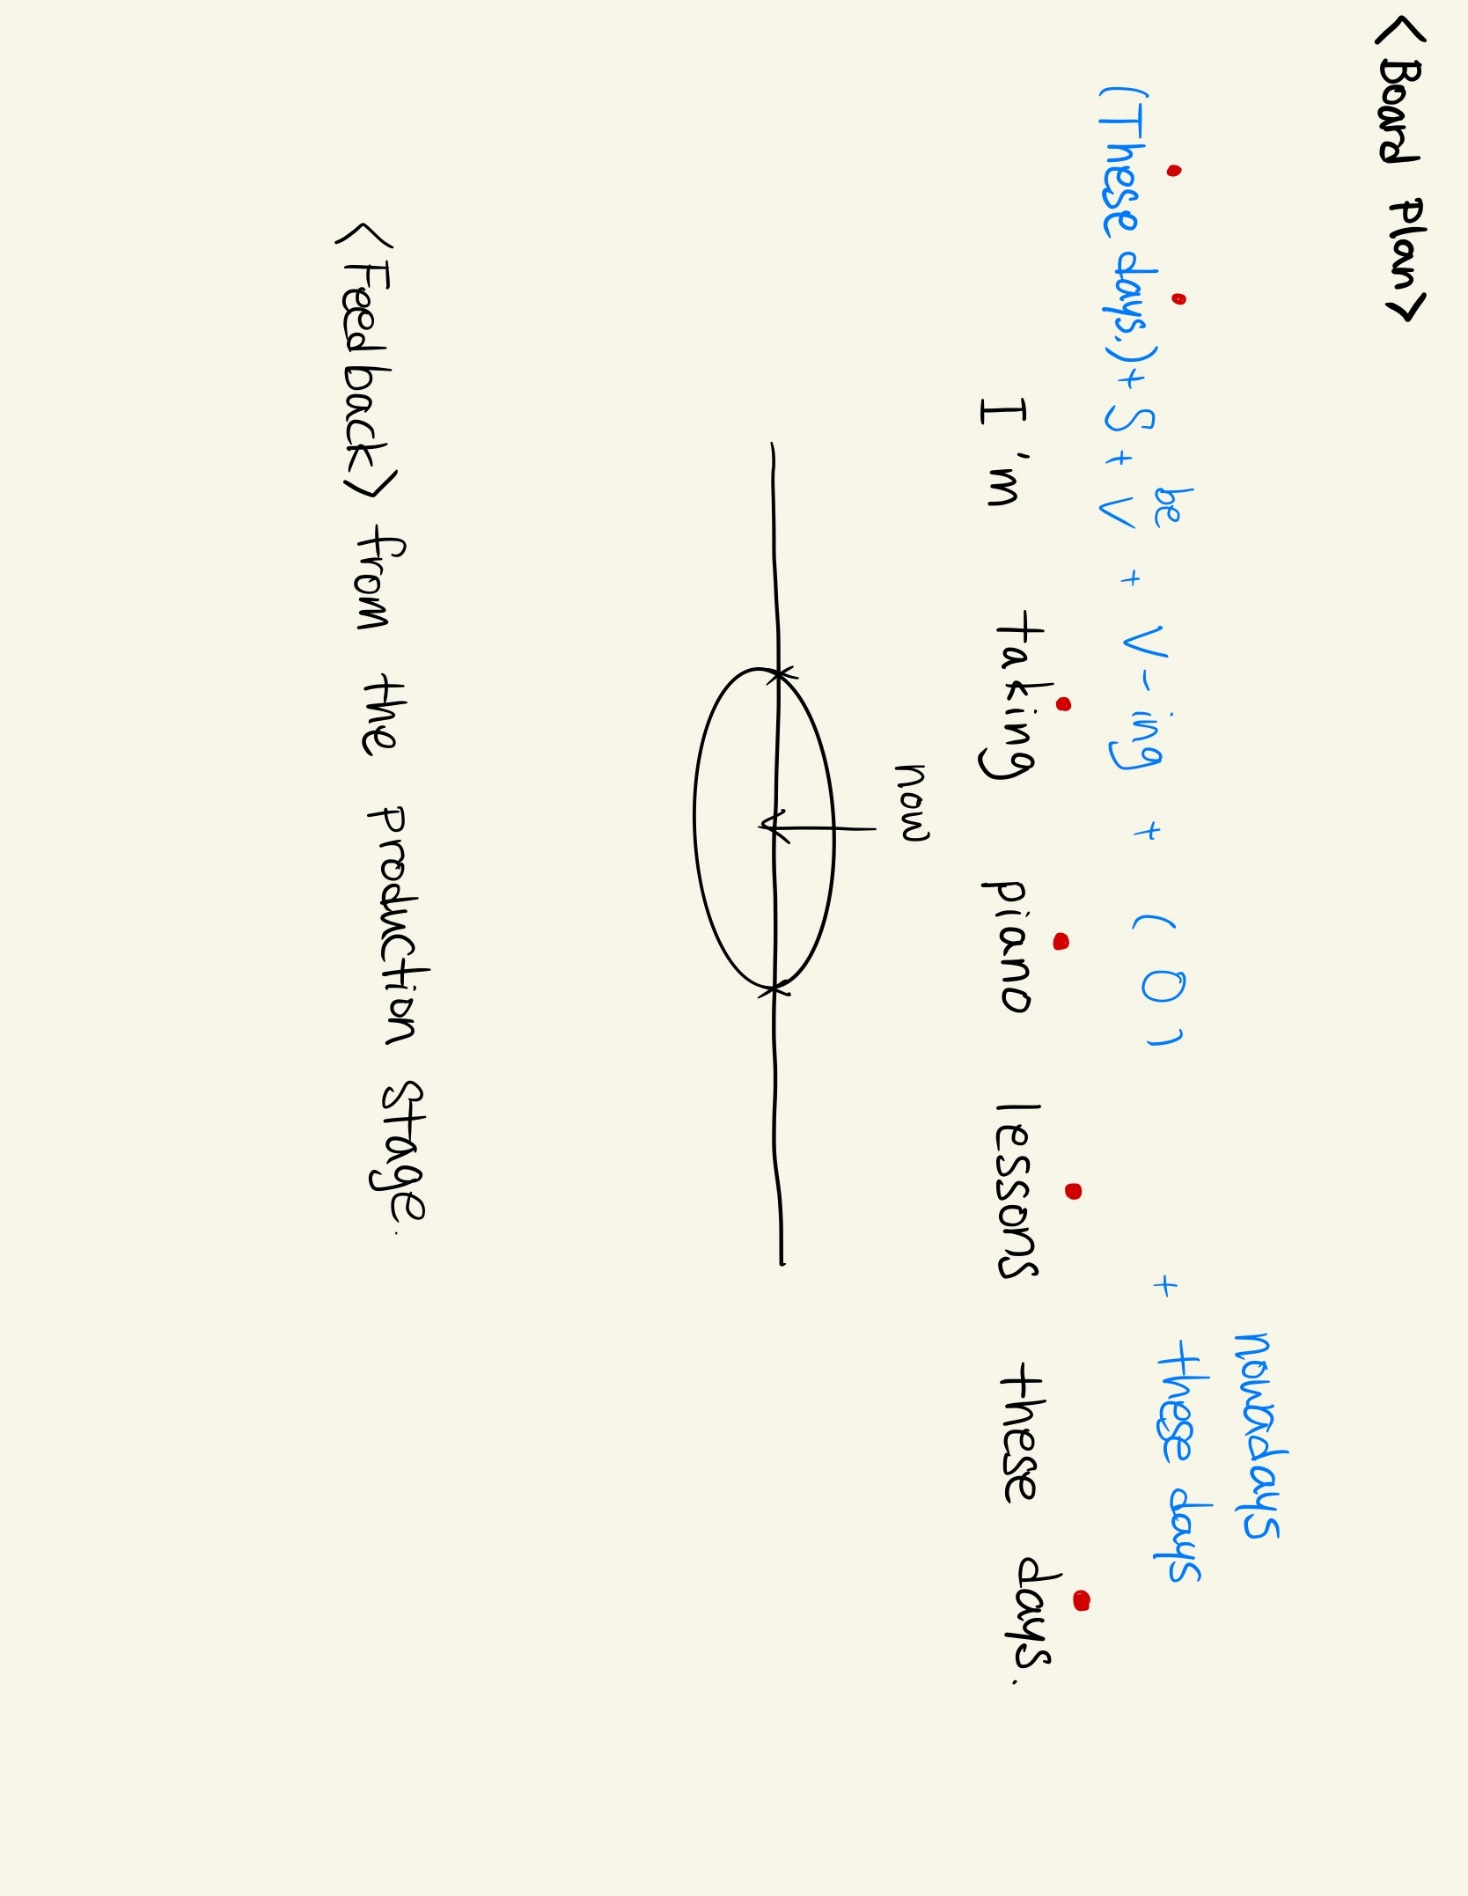 <Board Plan>
nowadays
be
(These days.) + S + V + V-ing + (O) + these days
I'm taking piano lessons these days.
now
<Feedback> from the production stage.